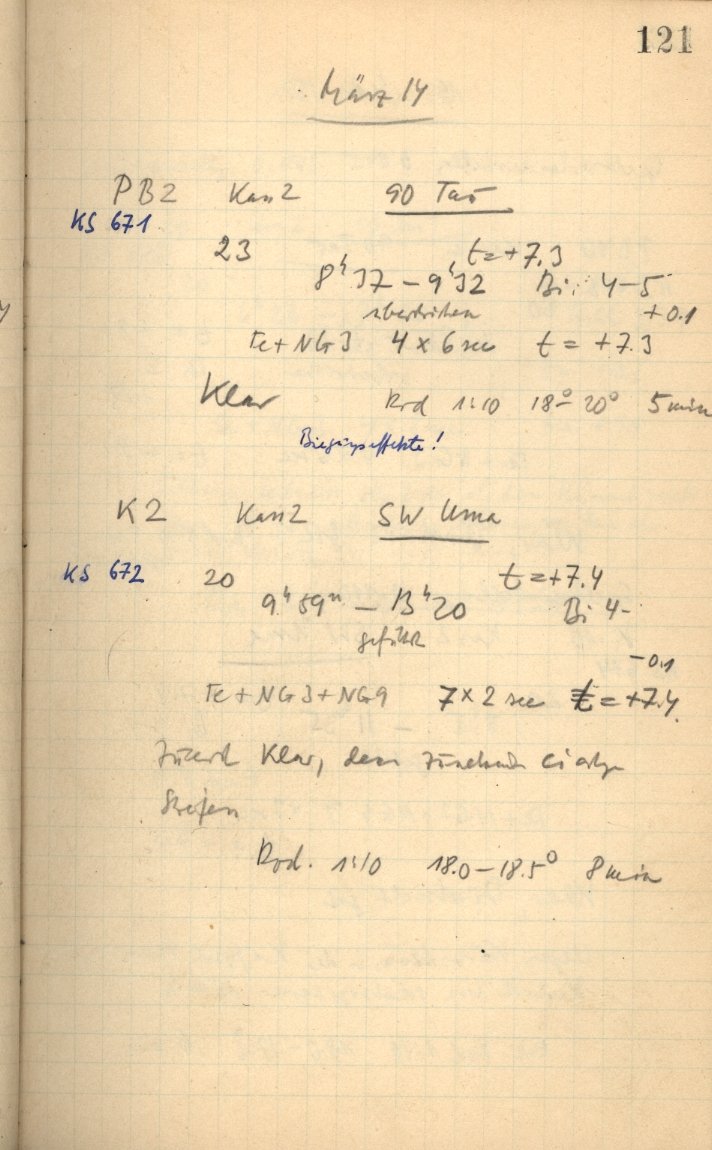 121
März 14
PB2 Kass2 90 Tau
KS 671
23 t=+7.3
8h37 – 9h32 Bi: 4–5
überstrichen +0.1
Fe+NG3 4×6 sec t = +7.3
Klar Rod 1:10 18°–20° 5 min
Biegungseffekte!
K2 Kass2 SW Uma
KS 672 20 t=+7.4
9h59m – 13h20 Bi 4-
geführt
–0.1
Fe+NG3+NG9 7×2 sec t=+7.4
Zuerst Klar, dann zunehmend ci artige
Streifen
Rod. 1:10 18.0–18.5° 8 min